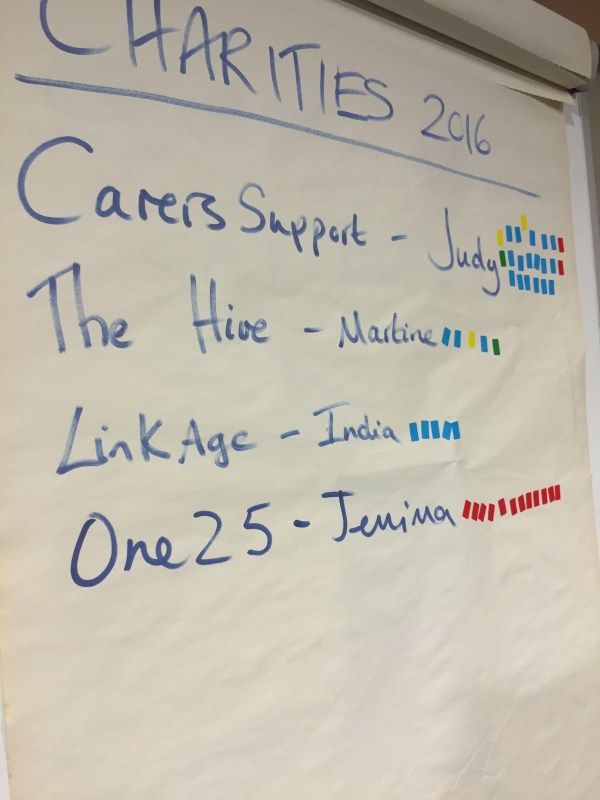 CHARITIES 2016
Carers Support - Judy
The Hive - Martine
LinkAge - India
One25 - Jemima